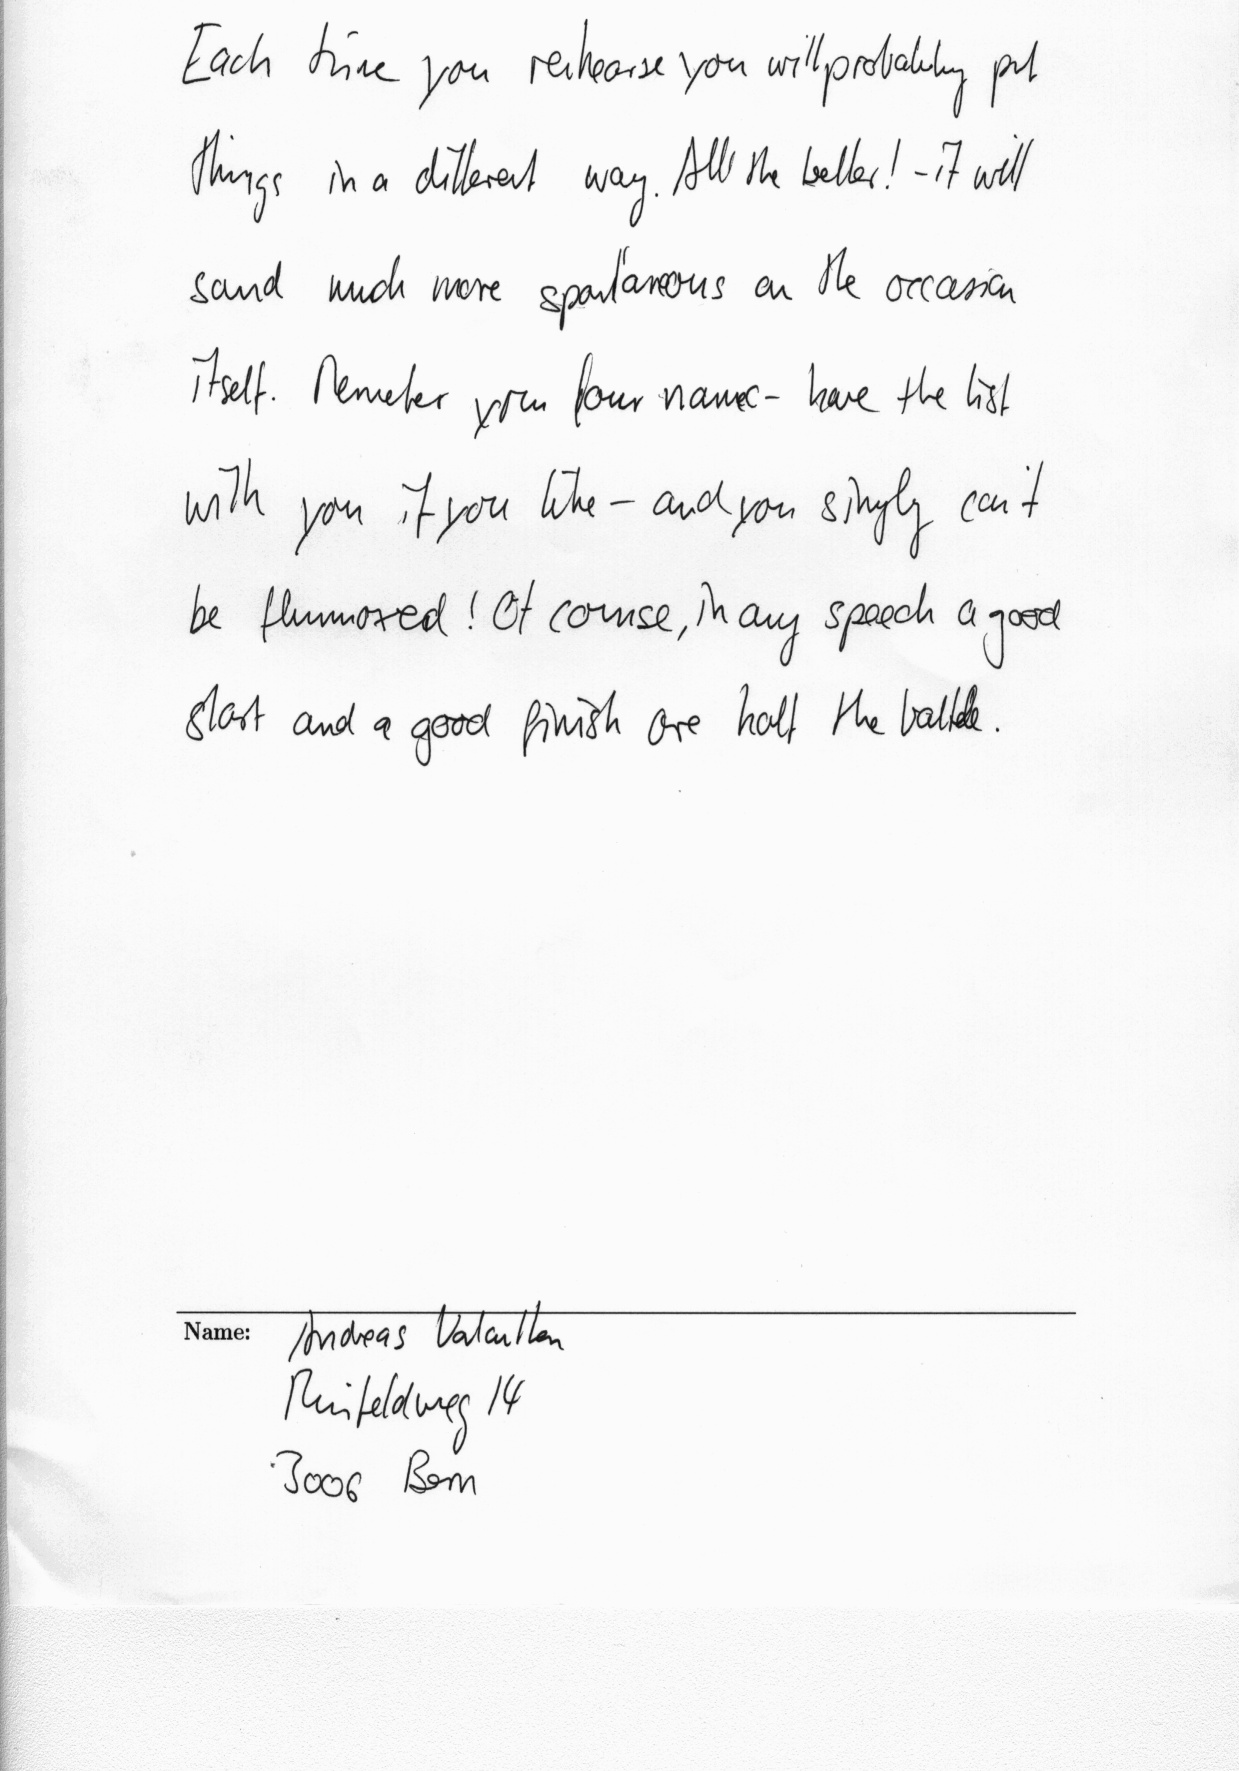 Each time you rehearse you will probably put
things in a different way. All the better! - it will
sound much more spontaneous on the occasion
itself. Remember your four names - have the list
with you if you like - and you simply can't
be flummoxed! Of course, in any speech a good
start and a good finish are half the battle.
Name: Andreas
14
3006 Bern